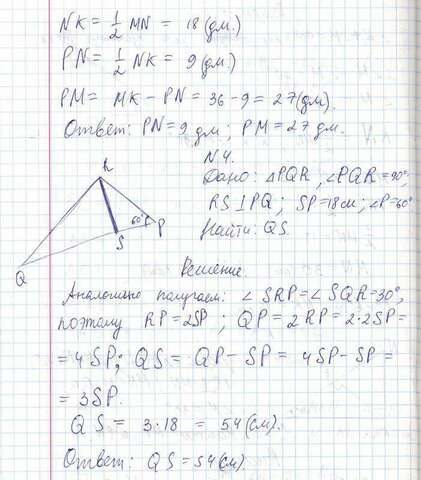 NK = 1/2 MN = 18 (дм.)
PN = 1/2 NK = 9 (дм.)
PM = MK – PN = 36 – 9 = 27 (дм).
Ответ: PN = 9 дм ; PM = 27 дм.
N 4.
Дано: △PQR, ∠PQR = 90°,
RS ⊥ PQ ; SP = 18 см; ∠P = 60°
Найти: QS.
R
60°
P
S
Q
Решение
Аналогично получаем: ∠ SRP = ∠ SQR = 30°,
поэтому RP = 2SP ; QP = 2 RP = 2·2SP =
= 4 SP; QS = QP – SP = 4SP – SP =
= 3SP.
QS = 3·18 = 54 (см).
Ответ: QS = 54 (см)